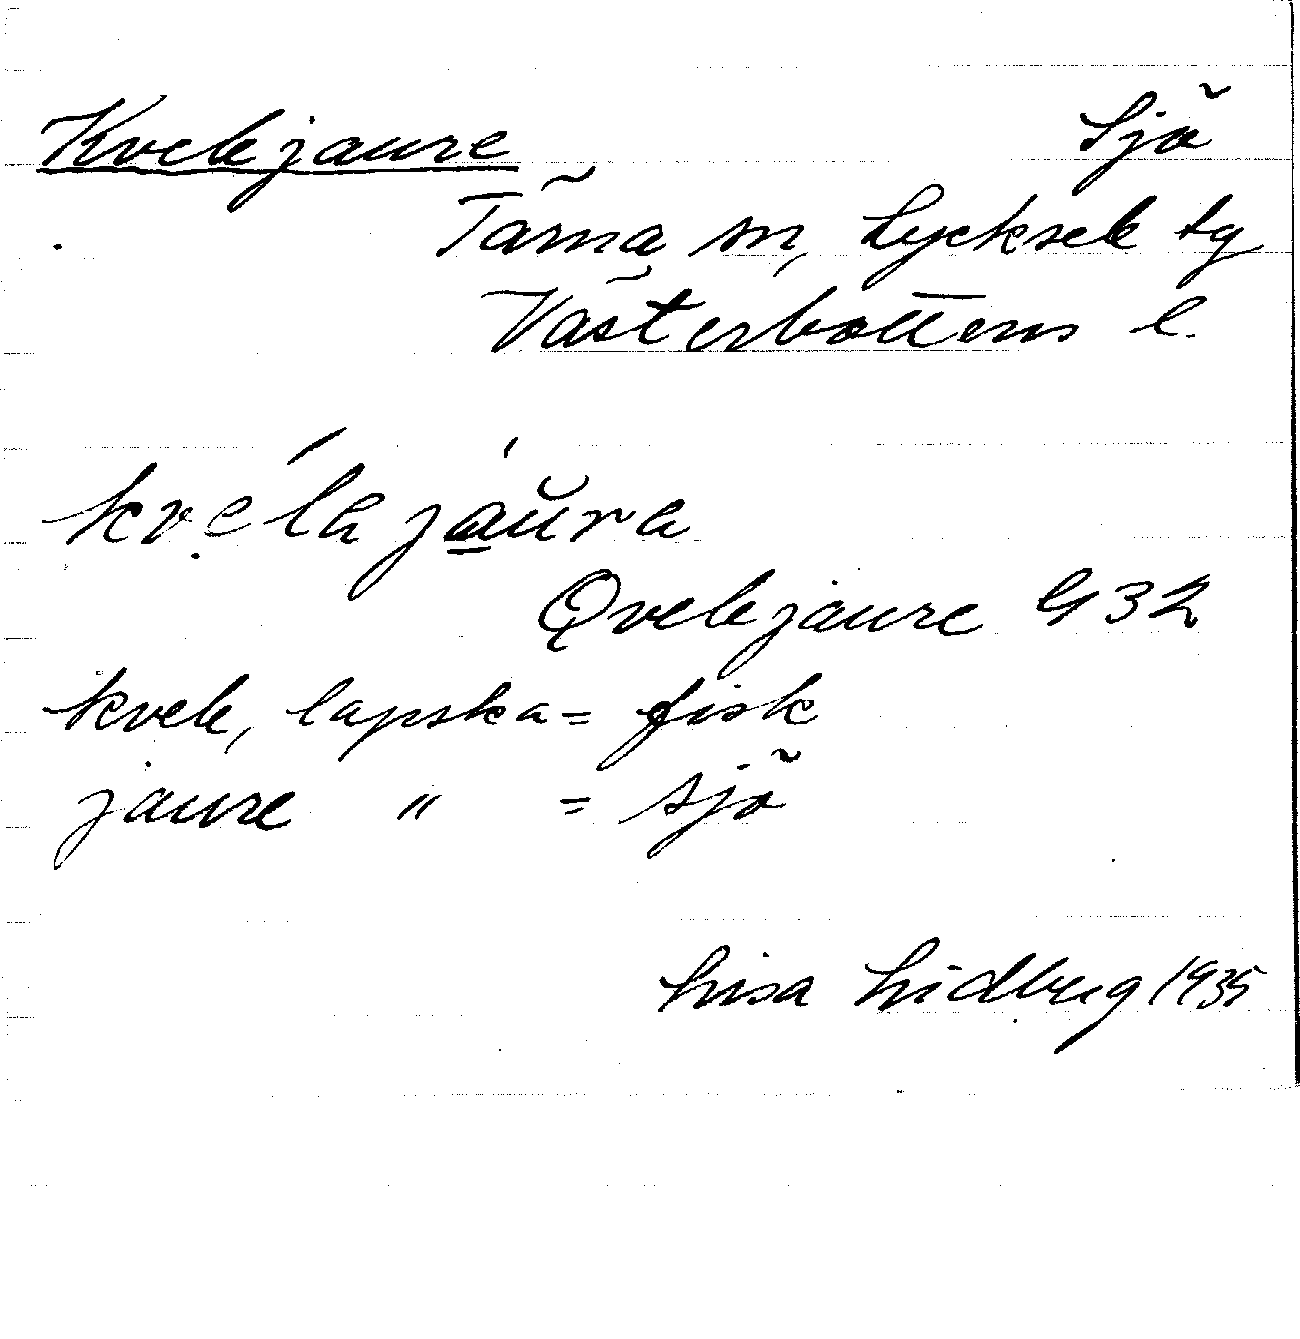 Kvelejaure Sjö
Tärna sn, Lycksele tg
Västerbottens l.
Qvelejaure G 32
kvele, lapska = fisk
jaure " = sjö
Lisa Lidberg 1935